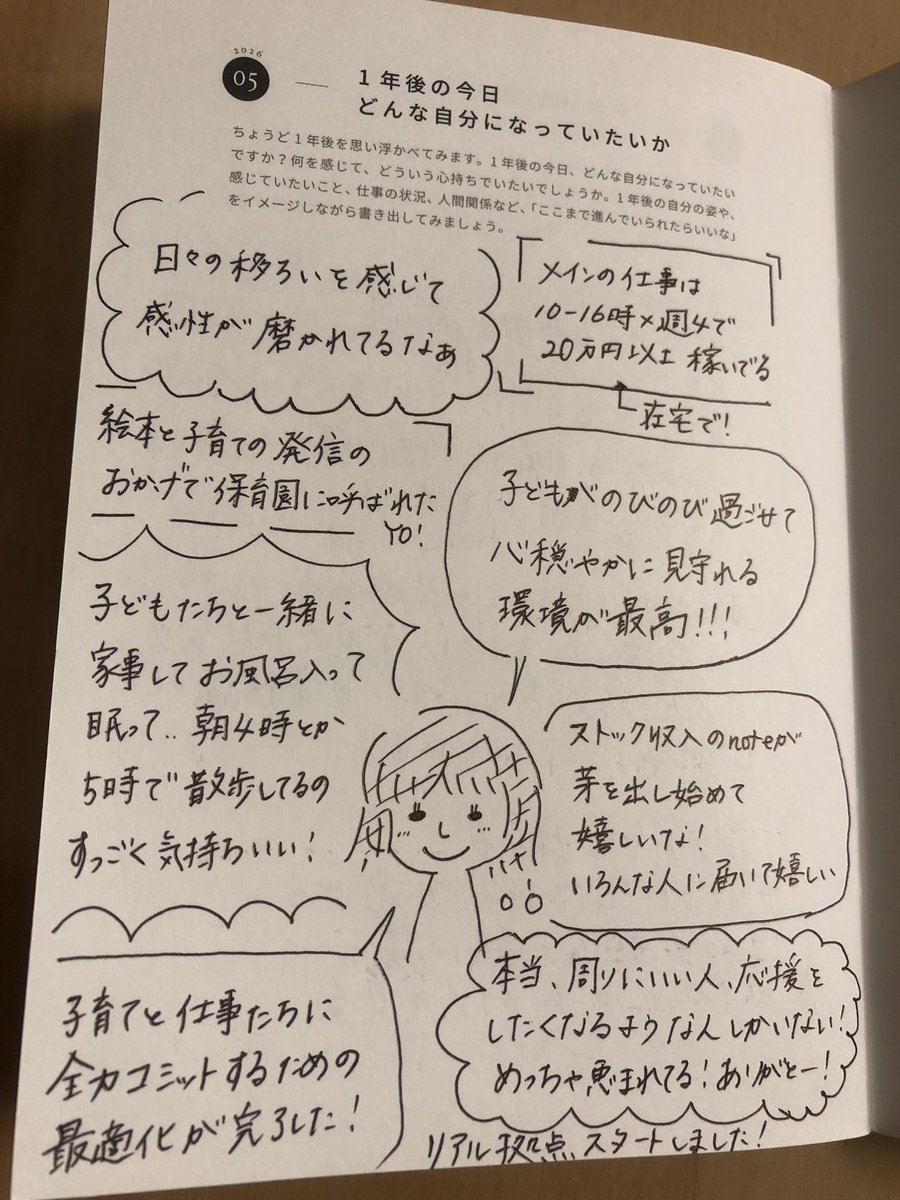 2026
05
1年後の今日
どんな自分になっていたいか
ちょうど1年後を思い浮かべてみます。1年後の今日、どんな自分になっていたい
ですか?何を感じて、どういう心持ちでいたいでしょうか。1年後の自分の姿や、
感じていたいこと、仕事の状況、人間関係など、「ここまで進んでいられたらいいな」
をイメージしながら書き出してみましょう。
日々の移ろいを感じて
感性が磨かれてるなぁ
メインの仕事は
10-16時×週4で
20万円以上稼いでる
在宅で!
絵本と子育ての発信の
おかげで保育園に呼ばれた
YO!
子どもがのびのび過ごせて
心穏やかに見守れる
環境が最高!!!
子どもたちと一緒に
家事してお風呂入って
眠って..朝4時とか
5時で散歩してるの
すっごく気持ちいい!
ストック収入のnoteが
芽を出し始めて
嬉しいな!
いろんな人に届いて嬉しい
子育てと仕事たちに
全力コミットするための
最適化が完了した!
本当、周りにいい人、応援を
したくなるような人しかいない!
めっちゃ恵まれてる!ありがとー!
リアル拠点、スタートしました!